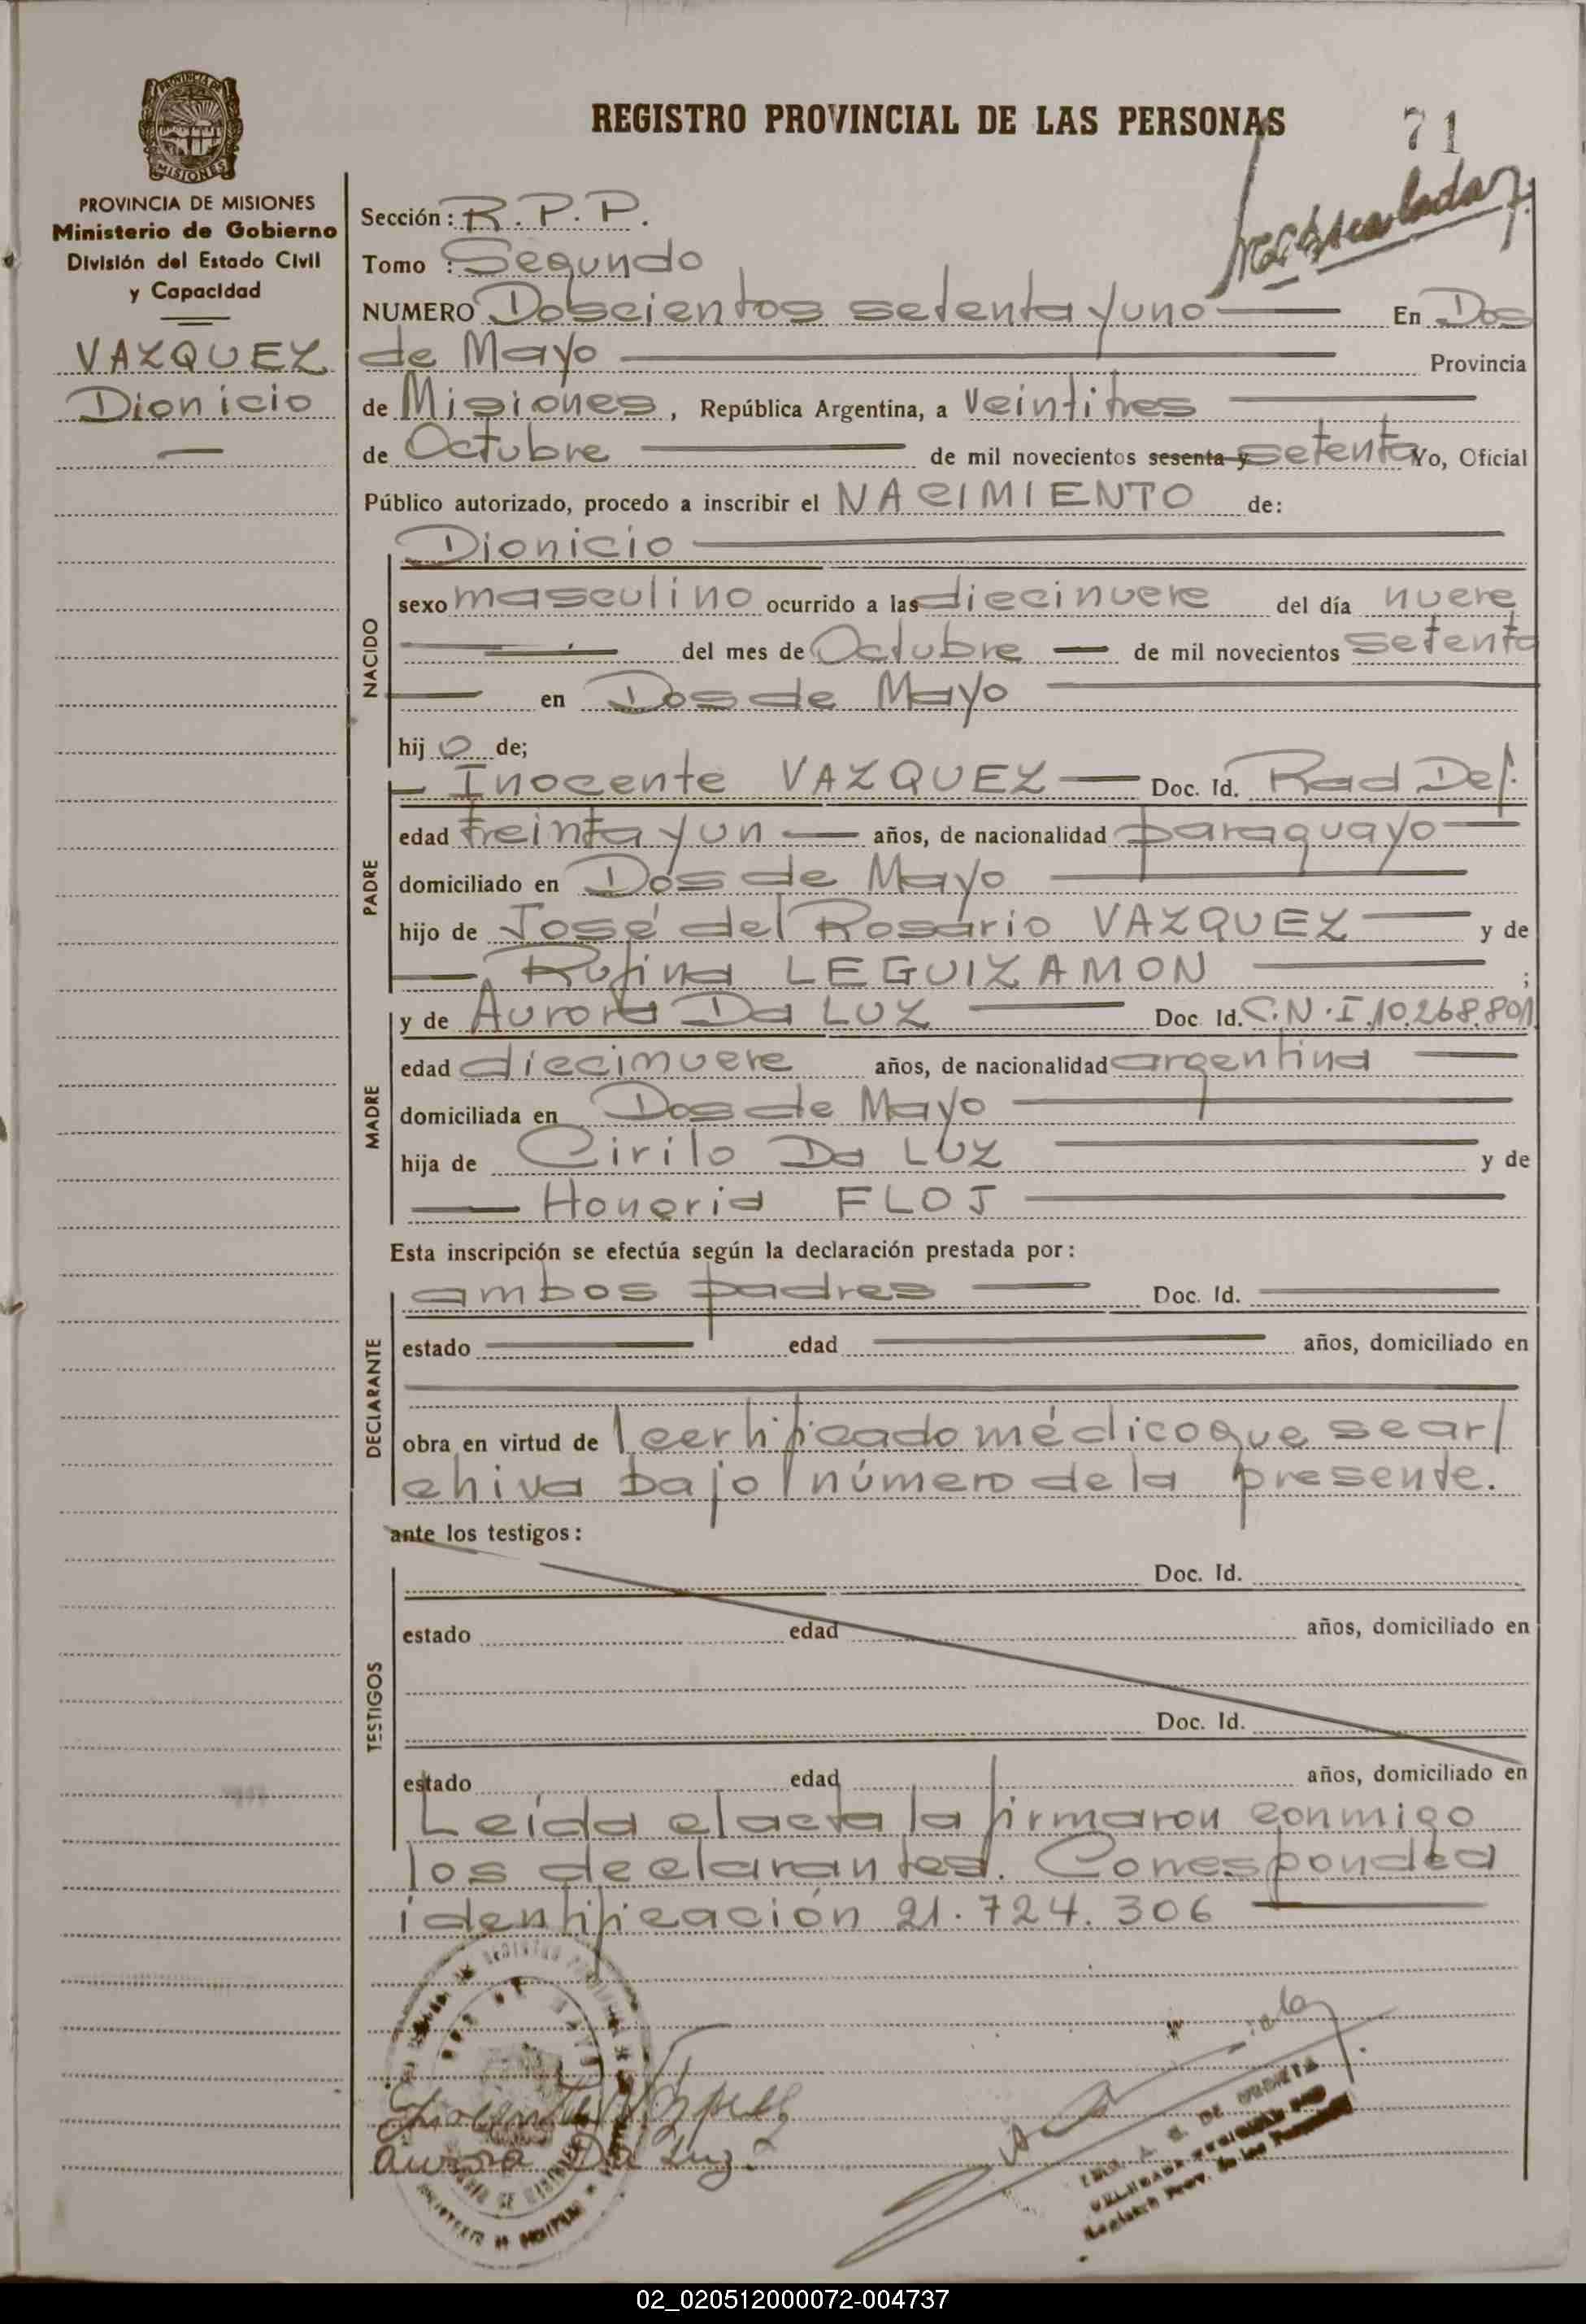 REGISTRO PROVINCIAL DE LAS PERSONAS
71
PROVINCIA DE MISIONES
PROVINCIA DE MISIONES
Ministerio de Gobierno
División del Estado Civil
y Capacidad
VAZQUEZ
Dionicio
Sección: R.P.P.
Tomo : Segundo
NUMERO Doscientos setenta y uno En Dos
de Mayo Provincia
de Misiones, República Argentina, a veintitres
de Octubre de mil novecientos sesenta y setenta Yo, Oficial
Público autorizado, procedo a inscribir el NACIMIENTO de:
NACIDO
Dionicio
sexo masculino ocurrido a las diecinueve del día nueve
del mes de Octubre de mil novecientos setenta
en Dos de Mayo
hij o de;
PADRE
Inocente VAZQUEZ Doc. Id. Rad Def.
edad treinta y un años, de nacionalidad paraguayo
domiciliado en Dos de Mayo
hijo de José del Rosario VAZQUEZ y de
Rufina LEGUIZAMON ;
MADRE
y de Aurora Da LUZ Doc. Id. C.N.I.10.268.801
edad diecinueve años, de nacionalidad argentina
domiciliada en Dos de Mayo
hija de Cirilo Da LUZ y de
Honoria FLOJ
Esta inscripción se efectúa según la declaración prestada por:
DECLARANTE
ambos padres Doc. Id.
estado edad años, domiciliado en
obra en virtud de certificado médico que se ar/
chiva bajo número de la presente.
ante los testigos:
TESTIGOS
Doc. Id.
estado edad años, domiciliado en
Doc. Id.
estado edad años, domiciliado en
Leída el acta la firmaron conmigo
los declarantes. Corresponde a
identificación 21.724.306
Aurora Da Luz
Registro Prov. de las Personas
02_020512000072-004737